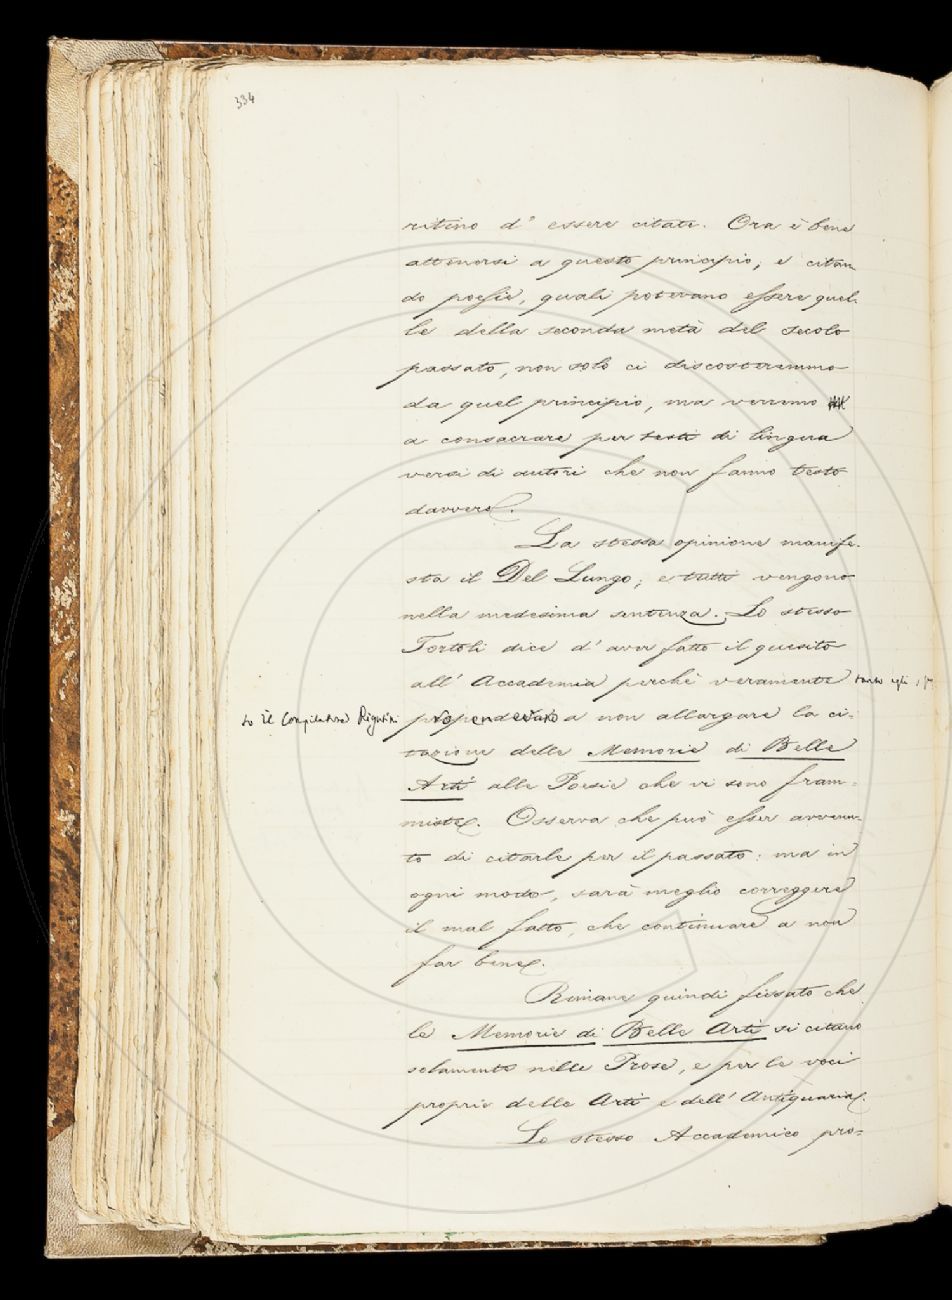 334
ritino d' essere citati. Ora è bene
attenersi a questo principio; e citan-
do poesie, quali potevano essere quel-
le della seconda metà del secolo
passato, non solo ci discosteremmo
da quel principio, ma verremo
a consacrare per testi di lingua
versi di autori che non fanno testo
davvero.
La stessa opinione manife-
sta il Del Lungo; e tutti vengono
nella medesima sentenza. Lo stesso
Tortoli dice d' aver fatto il quesito
all' Accademia perchè veramente tanto egli,
to il Compilatore Rigutini propendevano a non allargare la ci-
tazione delle Memorie di Belle
Arti alle Poesie che vi sono fram-
miste. Osserva che può esser avvenu-
to di citarle per il passato: ma in
ogni modo, sarà meglio correggere
il mal fatto, che continuare a non
far bene.
Rimane quindi fissato che
le Memorie di Belle Arti si citano
solamente nelle Prose, e per le voci
proprie delle Arti e dell' Antiquaria.
Lo stesso Accademico pro-